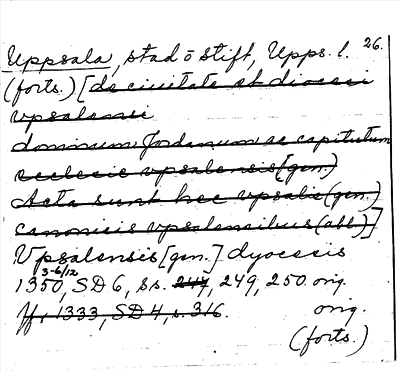 26.
Uppsala, stad o stift, Upps. l.
(forts.) [de civitate et diocesi
vpsalensi
dominum Jordanum ac capitulum
ecclesie vpsalensis (gen.)
Acta sunt hec vpsalie (gen.)
canonicis vpsalensibus (abl.)]
Vpsalensis [gen.] dyocesis
3-6/12
1350, SD 6, ss. 247, 249, 250. orig.
1333, SD 4, s. 316. orig.
(forts.)